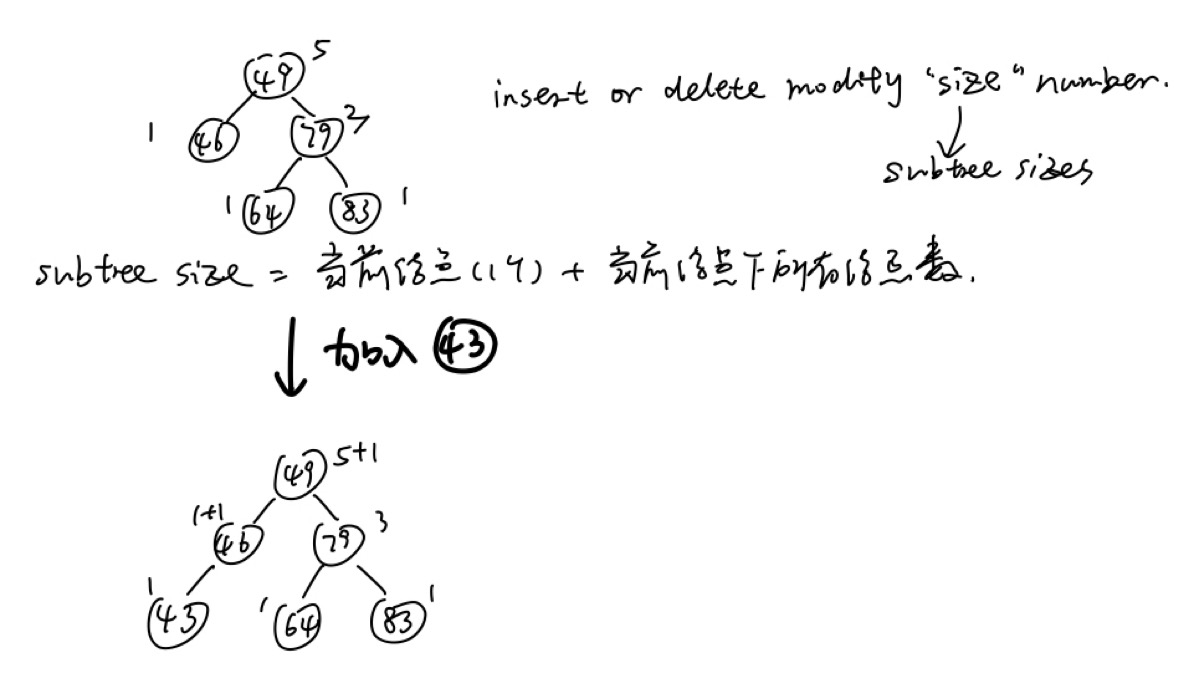 49 5
insert or delete modify "size" number.
1 46 79 3
subtree sizes
1 64 83 1
subtree size = 当前结点(1个) + 当前结点下所有结点数.
加入 43
49 5+1
1+1 46 79 3
1 43 1 64 83 1